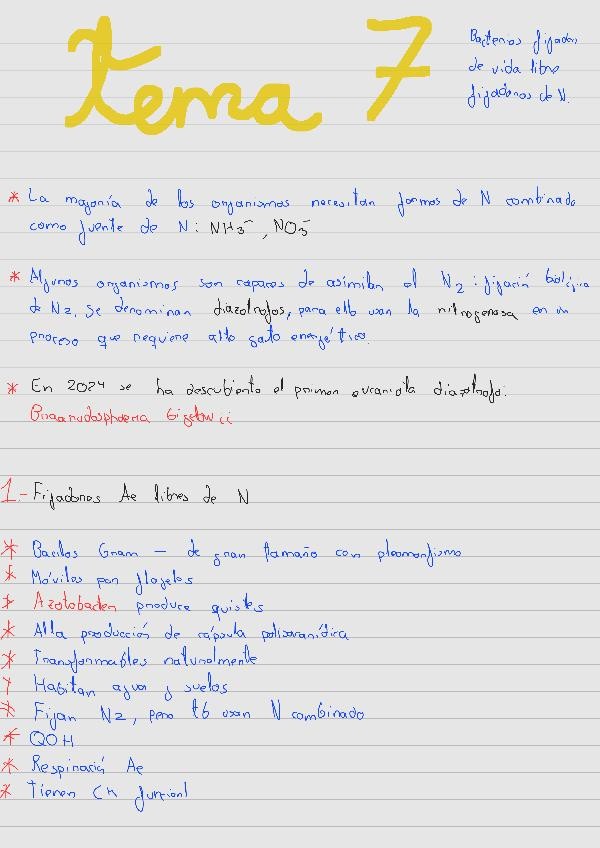 Tema 7
Bacterias fijadoras
de vida libre
fijadoras de N.
* La mayoría de los organismos necesitan formas de N combinado
como fuente de N: NH3⁻, NO3⁻
* Algunos organismos son capaces de asimilar el N2: fijación biológica
de N2. Se denominan diazótrofos, para ello usan la nitrogenasa en un
proceso que requiere alto gasto energético.
* En 2024 se ha descubierto el primer eucariota diazótrofo:
Braarudosphaera bigelowii
1.- Fijadores Ae libres de N
* Bacilos Gram - de gran tamaño con pleomorfismo
* Móviles por flagelos
* Azotobacter produce quistes
* Alta producción de cápsula polisacarídica
* Transformables naturalmente
* Habitan agua y suelos
* Fijan N2, pero tb usan N combinado
* QOH
* Respiración Ae
* Tienen CK funcional